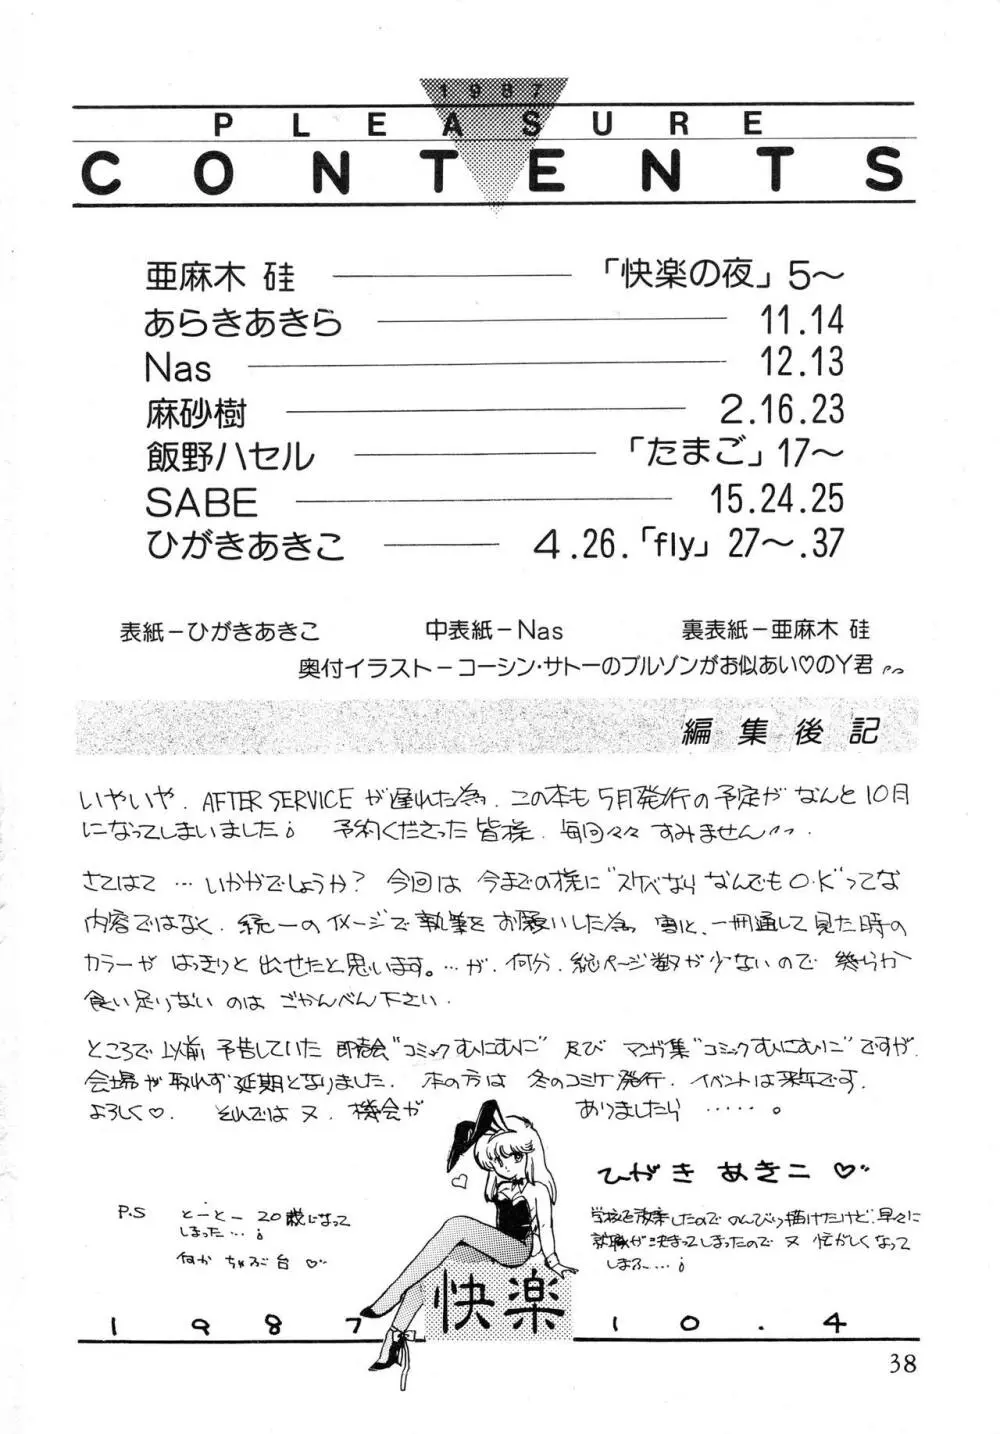 1987
PLEASURE
CONTENTS
亜麻木 硅 「快楽の夜」5〜
あらきあきら 11.14
Nas 12.13
麻砂樹 2.16.23
飯野ハセル 「たまご」17〜
SABE 15.24.25
ひがきあきこ 4.26.「fly」27〜.37
表紙−ひがきあきこ 中表紙−Nas 裏表紙−亜麻木 硅
奥付イラスト−コーシン・サトーのブルゾンがお似あい♡のY君
編集後記
いやいや. AFTER SERVICEが遅れた為. この本も5月発行の予定がなんと10月
になってしまいました! 予約くださった皆様. 毎回々々すみません
さてはて…いかがでしょうか? 今回は今までの様に"スケベならなんでもO.K"ってな
内容ではなく. 統一のイメージで執筆をお願いした為 割と、一冊通して見た時の
カラーがはっきりと出せたと思います。…が. 何分. 総ページ数が少ないので 幾らか
食い足りないのはごかんべん下さい.
ところで以前予告していた即売会"コミックむにむに" 及び マンガ集"コミックむにむに"ですが.
会場が取れず延期となりました. 本の方は冬のコミケ発行. イベントは来年です.
よろしく♡. それではヌ. 機会が ありましたら……。
ひがきあきこ♡
P.S とーとー20歳になって
しまった…!
何か ちゃぶ台♡
学校を放棄したのでのんびり描けたけど、早々に
就職が決まってしまったのでヌ 忙がしくなって
しまふ…!
快楽
1987 10.4
38